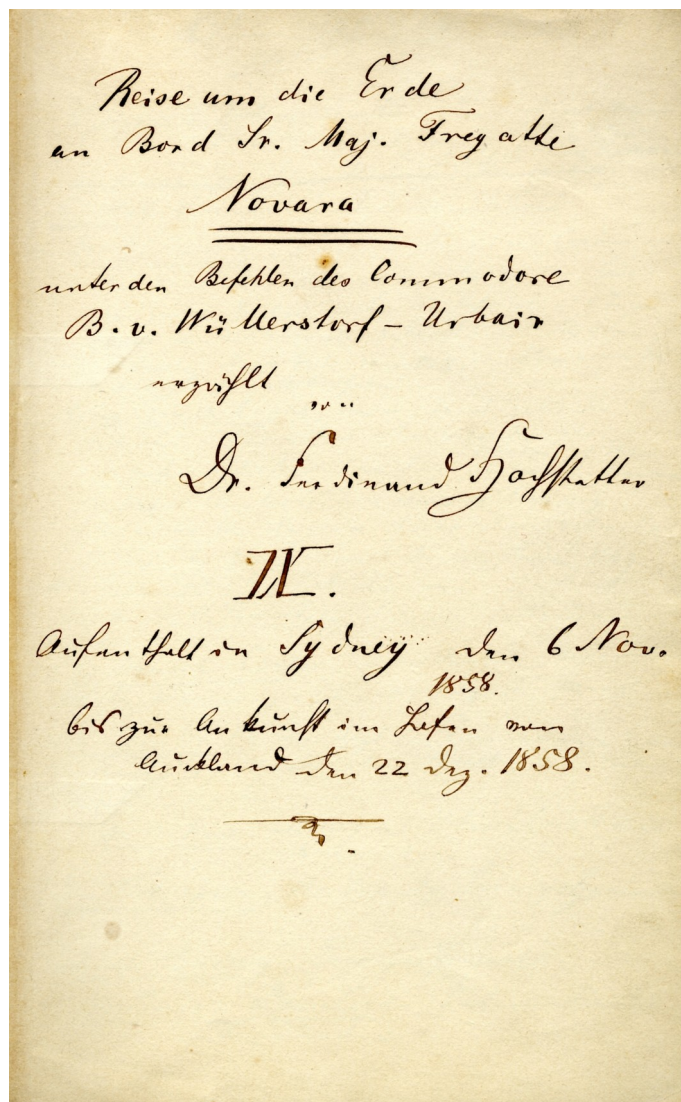 Reise um die Erde
an Bord Sr. Maj. Fregatte
Novara
unter den Befehlen des Commodore
B. v. Wüllerstorf - Urbair
erzählt
von
Dr. Ferdinand Hochstetter
IX.
Aufenthalt in Sydney den 6 Nov.
1858.
bis zur Ankunft im Hafen von
Auckland den 22 Dez. 1858.